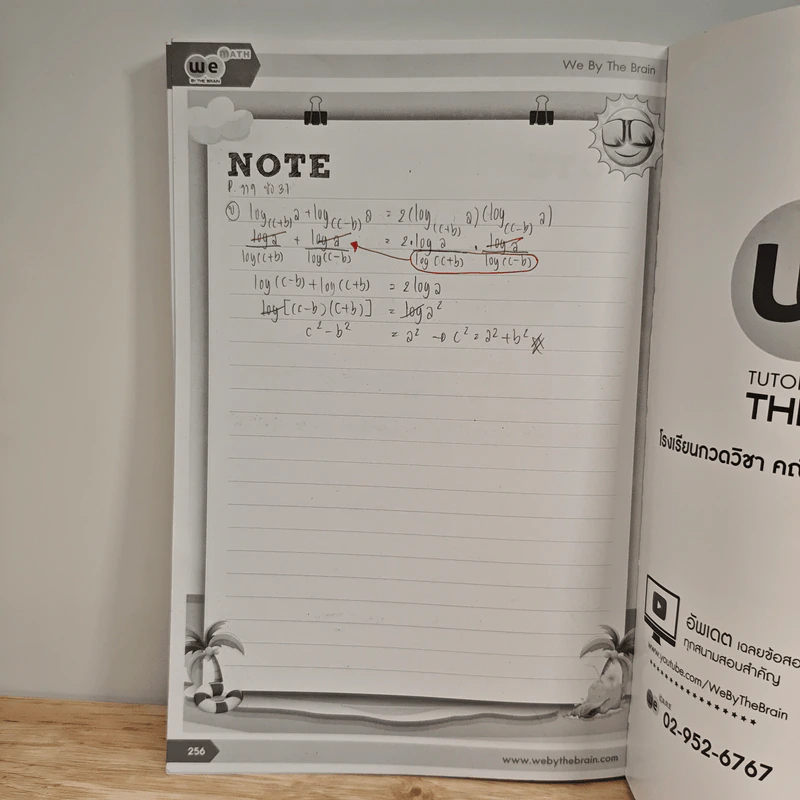 we MATH
BY THE BRAIN
We By The Brain
NOTE
ข) log(c+b) a + log(c-b) a = 2(log(c+b) a)(log(c-b) a)
log a / log(c+b) + log a / log(c-b) = 2·log a / log(c+b) · log a / log(c-b)
log (c-b) + log (c+b) = 2 log a
log [(c-b)(c+b)] = log a²
c² - b² = a² → c² = a² + b²
256
www.webythebrain.com
โรงเรียนกวดวิชา
อัพเดต เฉลยข้อสอ
ทุกสนามสอบสำคัญ
www.youtube.com/WeByTheBrain
we CARE
02-952-6767